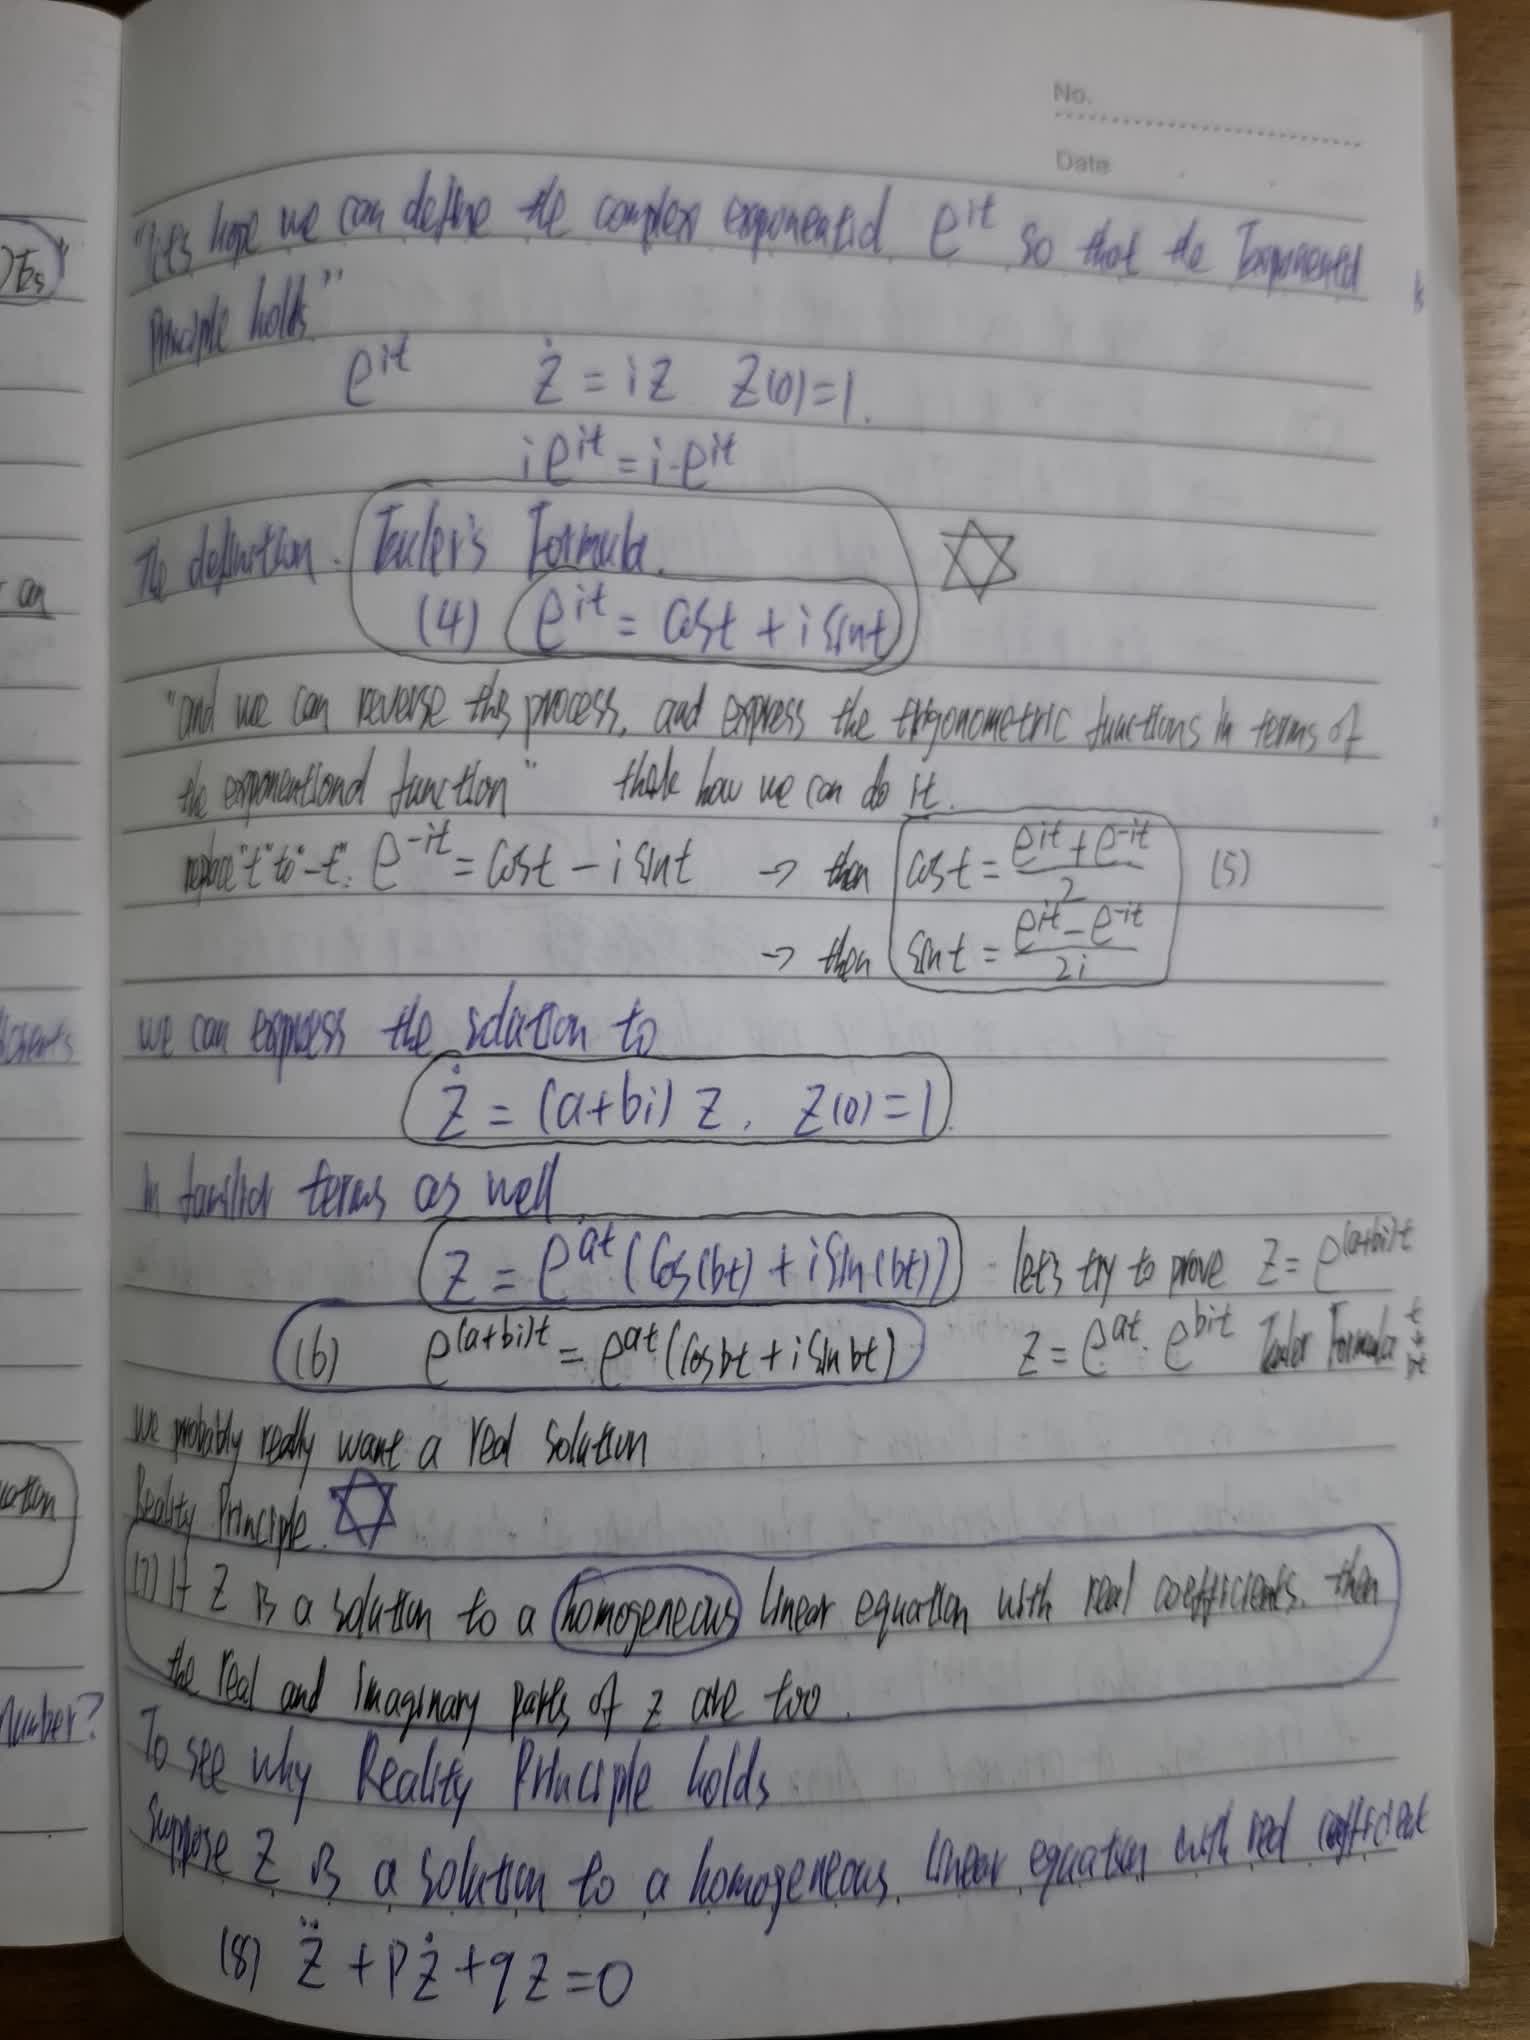 No.
Date
"let's hope we can define the complex exponential e^{it} so that the Exponential
Principle holds."
e^{it} ż = iz z(0)=1.
ie^{it} = i·e^{it}
The definition. Euler's Formula.
(4) e^{it} = cost + i sint
"and we can reverse this process, and express the trigonometric functions in terms of
the exponentional function" think how we can do it.
replace "t" to "-t". e^{-it} = cost - i sint → then cost = \frac{e^{it}+e^{-it}}{2} (5)
→ then sint = \frac{e^{it}-e^{-it}}{2i}
we can express the solution to
ż = (a+bi) z, z(0)=1.
In familiar terms as well.
z = e^{at}(cos(bt) + i sin(bt)) let's try to prove z = e^{(a+bi)t}
(6) e^{(a+bi)t} = e^{at}(cosbt + i sin bt) z = e^{at}·e^{bit} Euler Formula t → bt
we probably really want a real solution
Reality Principle.
(7) If z is a solution to a homogeneous linear equation with real coefficients, then
the real and imaginary parts of z are too.
To see why Reality Principle holds
Suppose z is a solution to a homogeneous linear equation with real coefficient
(8) z̈ + pż + qz = 0
DEs"
an
number?